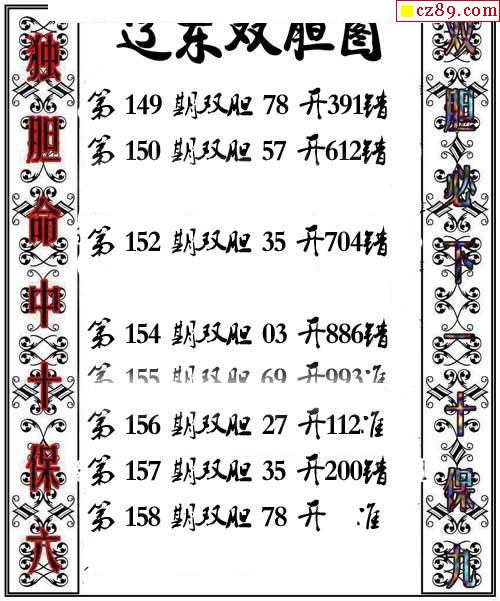 cz89.com
辽东双胆图
独胆命中十保六
第 149 期双胆 78 开391错
第 150 期双胆 57 开612错
第 152 期双胆 35 开704错
第 154 期双胆 03 开886错
第 155 期双胆 69 开993准
第 156 期双胆 27 开112准
第 157 期双胆 35 开200错
第 158 期双胆 78 开 准
双胆必下一十保九